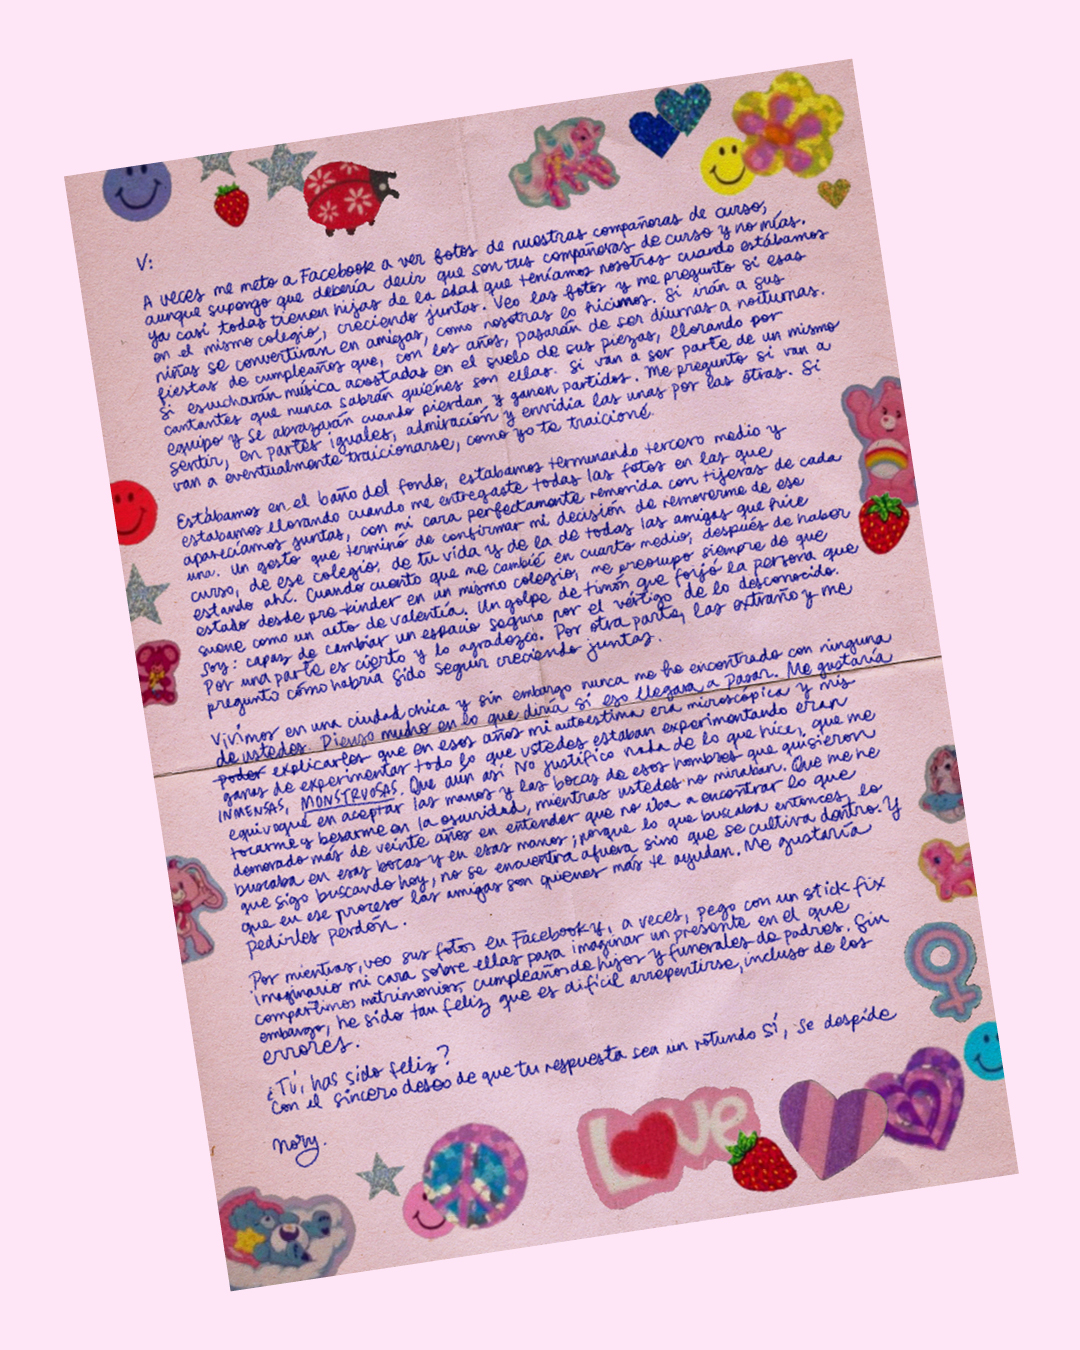 V:
A veces me meto a Facebook a ver fotos de nuestras compañeras de curso,
aunque supongo que debería decir que son tus compañeras de curso y no mías.
Ya casi todas tienen hijas de la edad que teníamos nosotras cuando estábamos
en el mismo colegio, creciendo juntas. Veo las fotos y me pregunto si esas
niñas se convertirán en amigas, como nosotras lo hicimos. Si irán a sus
fiestas de cumpleaños que, con los años, pasarán de ser diurnas a nocturnas.
Si escucharán música acostadas en el suelo de sus piezas, llorando por
cantantes que nunca sabrán quiénes son ellas. Si van a ser parte de un mismo
equipo y se abrazarán cuando pierdan y ganen partidos. Me pregunto si van a
sentir, en partes iguales, admiración y envidia las unas por las otras. Si
van a eventualmente traicionarse, como yo te traicioné.
Estábamos en el baño del fondo, estábamos terminando tercero medio y
estábamos llorando cuando me entregaste todas las fotos en las que
aparecíamos juntas, con mi cara perfectamente removida con tijeras de cada
una. Un gesto que terminó de confirmar mi decisión de removerme de ese
curso, de ese colegio, de tu vida y de la de todas las amigas que hice
estando ahí. Cuando cuento que me cambié en cuarto medio, después de haber
estado desde pre-kinder en un mismo colegio, me preocupo siempre de que
suene como un acto de valentía. Un golpe de timón que forjó la persona que
soy: capaz de cambiar un espacio seguro por el vértigo de lo desconocido.
Por una parte es cierto y lo agradezco. Por otra parte, las extraño y me
pregunto cómo habría sido seguir creciendo juntas.
Vivimos en una ciudad chica y sin embargo nunca me he encontrado con ninguna
de ustedes. Pienso mucho en lo que diría si eso llegara a pasar. Me gustaría
poder explicarles que en esos años mi autoestima era microscópica y mis
ganas de experimentar todo lo que ustedes estaban experimentando eran
INMENSAS, MONSTRUOSAS. Que aun así no justifico nada de lo que hice, que me
equivoqué en aceptar las manos y las bocas de esos hombres que quisieron
tocarme y besarme en la oscuridad, mientras ustedes no miraban. Que me he
demorado más de veinte años en entender que no iba a encontrar lo que
buscaba en esas bocas y en esas manos; porque lo que buscaba entonces, lo
que sigo buscando hoy, no se encuentra afuera sino que se cultiva dentro. Y
que en ese proceso las amigas son quienes más te ayudan. Me gustaría
pedirles perdón.
Por mientras, veo sus fotos en Facebook y, a veces, pego con un stick fix
imaginario mi cara sobre ellas para imaginar un presente en el que
compartimos matrimonios, cumpleaños de hijos y funerales de padres. Sin
embargo, he sido tan feliz que es difícil arrepentirse, incluso de los
errores.
¿Tú, has sido feliz?
Con el sincero deseo de que tu respuesta sea un rotundo SÍ, se despide
Nory.
Love